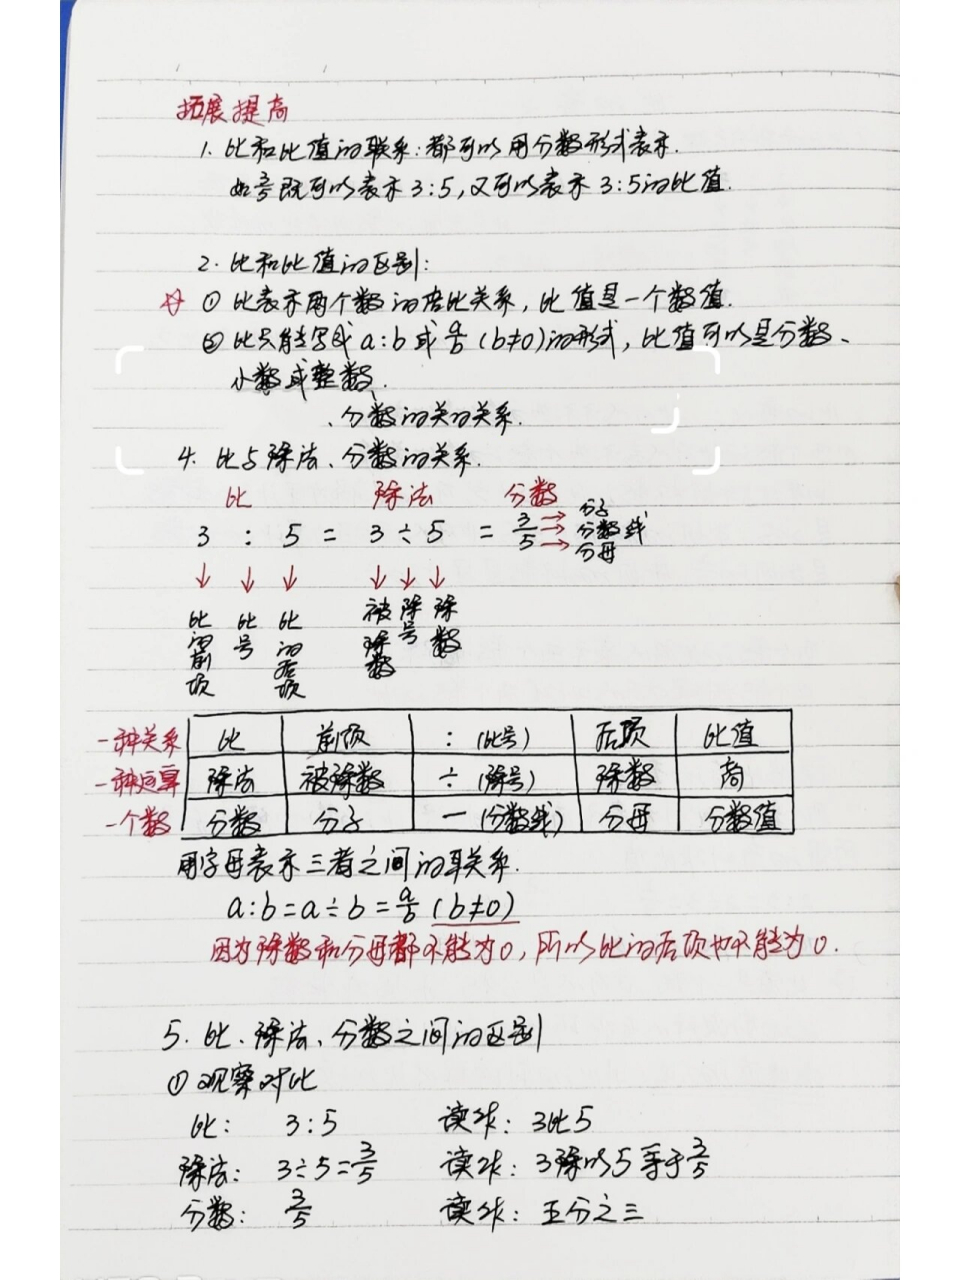 拓展提高
1. 比和比值的联系:都可以用分数形式表示.
如3/5既可以表示3:5,又可以表示3:5的比值.
2. 比和比值的区别:
☆ ① 比表示两个数的倍比关系,比值是一个数值.
② 比只能写成a:b或a/b(b≠0)的形式,比值可以是分数、
小数或整数.
、分数的关的关系.
4. 比与除法、分数的关系.
比 除法 分数
3 : 5 = 3 ÷ 5 = 3/5 → 分子 → 分数线 → 分母
↓ ↓ ↓ ↓ ↓ ↓
比的前项 比号 比的后项 被除数 除号 除数
一种关系 比 前项 :(比号) 后项 比值
一种运算 除法 被除数 ÷(除号) 除数 商
一个数 分数 分子 —(分数线) 分母 分数值
用字母表示三者之间的联关系.
a:b=a÷b=a/b (b≠0)
因为除数和分母都不能为0,所以比的后项也不能为0.
5. 比、除法、分数之间的区别
① 观察对比
比: 3:5 读作: 3比5
除法: 3÷5=3/5 读作: 3除以5等于3/5
分数: 3/5 读作: 五分之三